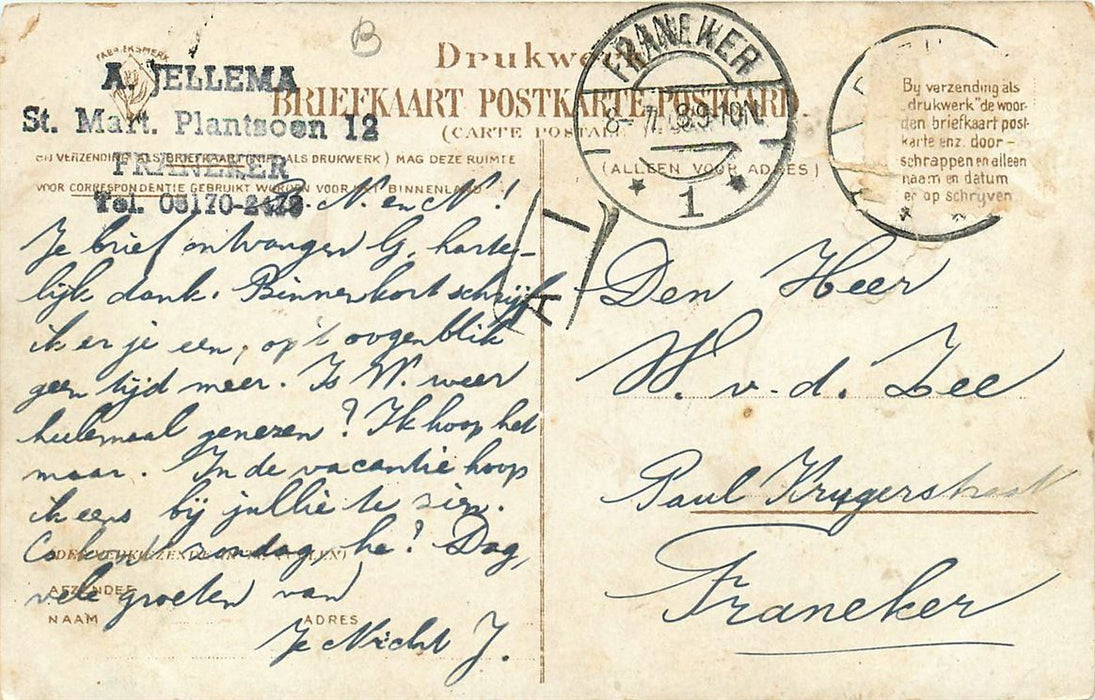 B
Drukwerk
FABRIEKSMERK
A. JELLEMA
St. Mart. Plantsoen 12
FRANEKER
Tel. 05170-2478
BRIEFKAART POSTKARTE POSTCARD
(CARTE POSTALE
(ALLEEN VOOR ADRES)
BIJ VERZENDING ALS BRIEFKAART (NIET ALS DRUKWERK) MAG DEZE RUIMTE
VOOR CORRESPONDENTIE GEBRUIKT WORDEN VOOR HET BINNENLAND
FRANEKER
8-10N
1
By verzending als
„drukwerk" de woor-
den briefkaart post-
karte enz. door-
schrappen en alleen
naam en datum
er op schryven
N. en N!
Je brief ontvangen G, harte-
lijk dank. Binnenkort schrijf
ik er je een, op 't oogenblik
geen tijd meer. Is W. weer
heelemaal genezen? Ik hoop het
maar. In de vacantie hoop
ik eens bij jullie te zien.
zondag, he? Dag,
vele groeten van
Je Nicht J.
AFZENDER
NAAM ADRES
Den Heer
W. v. d. Zee
Paul Krugerstraat
Franeker